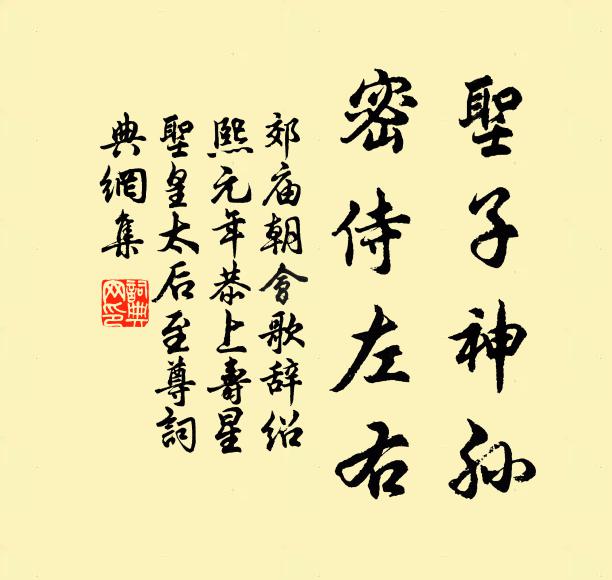 聖子神孫
密侍左右
郊庙朝會歌辞绍
熙元年恭上壽星
聖皇太后至尊詞
典網集
詞典網印